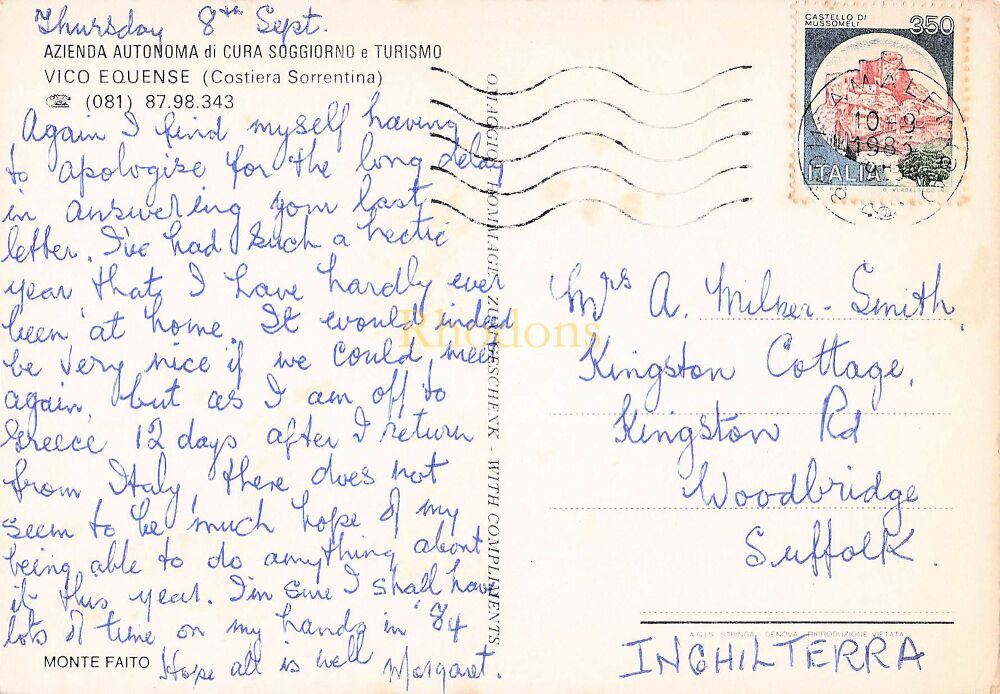 Thursday 8th Sept.
AZIENDA AUTONOMA di CURA SOGGIORNO e TURISMO
VICO EQUENSE (Costiera Sorrentina)
☎ (081) 87.98.343
Again I find myself having
to apologise for the long delay
in answering your last
letter. I've had such a hectic
year that I have hardly ever
been at home. It would indeed
be very nice if we could meet
again, but as I am off to
Greece 12 days after I return
from Italy, there does not
seem to be much hope of my
being able to do anything about
it this year. I'm sure I shall have
lots of time on my hands in '84
Hope all is well Margaret.
MONTE FAITO
OMAGGIO - HOMMAGE - ZUM GESCHENK - WITH COMPLIMENTS
CASTELLO DI
MUSSOMELI
350
ITALIA
10-9
1983
Mrs A. Milner-Smith,
Kingston Cottage,
Kingston Rd
Woodbridge
Suffolk.
A.G.I.S. STRINGA, GENOVA, RIPRODUZIONE VIETATA
INGHILTERRA
Rhodons